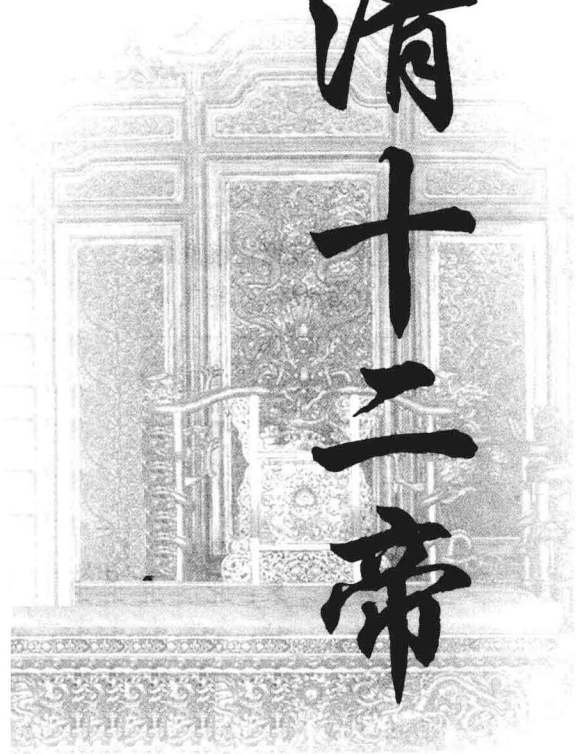 清十二帝